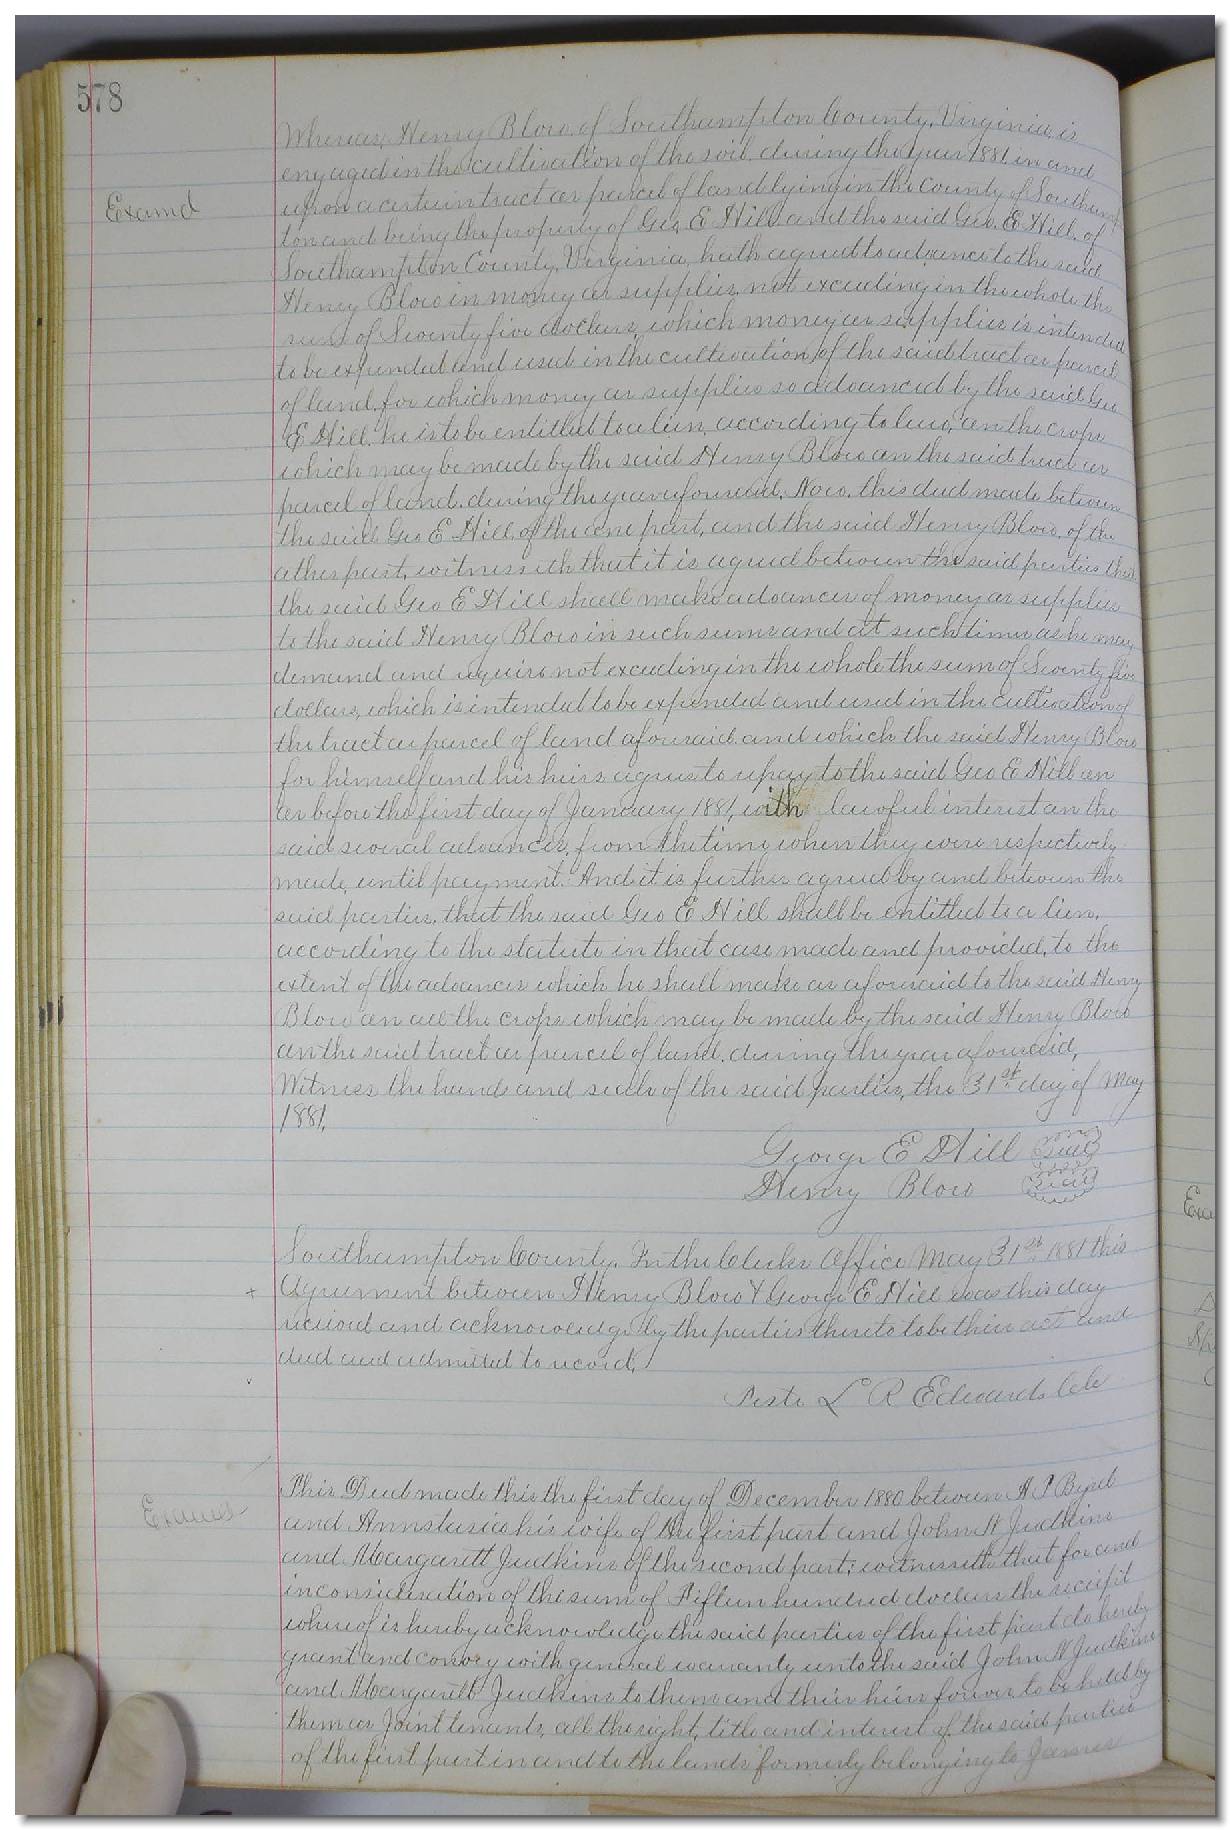 578
Whereas, Henry Blow of Southampton County, Virginia, is
engaged in the cultivation of the soil during the year 1881 in and
Examd
upon a certain tract or parcel of land lying in the County of Southamp
ton and being the property of Geo. E Hill and the said Geo. E. Hill, of
Southampton County, Virginia, hath agreed to advance to the said
Henry Blow in money or supplies, not exceeding in the whole the
sum of Seventy five dollars, which money or supplies is intended
to be expended and used in the cultivation of the said tract or parcel
of land, for which money or supplies so advanced by the said Geo
E Hill, he is to be entitled to a lien, according to law, on the crops
which may be made by the said Henry Blow on the said tract or
parcel of land, during the year aforesaid. Now, this deed made between
the said Geo E Hill, of the one part, and the said Henry Blow, of the
other part, witnesseth that it is agreed between the said parties that
the said Geo E Hill shall make advances of money or supplies
to the said Henry Blow in such sums and at such times as he may
demand and require not exceeding in the whole the sum of Seventy five
dollars, which is intended to be expended and used in the cultivation of
the tract or parcel of land aforesaid and which the said Henry Blow
for himself and his heirs agrees to repay to the said Geo E Hill on
or before the first day of January 1881, with lawful interest on the
said several advances, from the time when they were respectively
made, until payment. And it is further agreed by and between the
said parties, that the said Geo E Hill shall be entitled to a lien,
according to the statute in that case made and provided, to the
extent of the advances which he shall make as aforesaid to the said Henry
Blow on all the crops which may be made by the said Henry Blow
on the said tract or parcel of land, during the year aforesaid,
Witness the hands and seals of the said parties, the 31st day of May
1881.
George E Hill Seal
Henry Blow Seal
Southampton County. In the Clerks Office May 31st 1881 this
+ Agreement between Henry Blow & George E Hill was this day
received and acknowledge by the parties thereto to be their act and
deed and admitted to record,
Teste L R Edwards Clk
This Deed made this the first day of December 1880 between A. P Byrd
Examd
and Annstasia his wife of the first part and John H Judkins
and Margarett Judkins of the second part; witnesseth that for and
in consideration of the sum of Fifteen hundred dollars the receipt
whereof is hereby acknowledge the said parties of the first part do hereby
grant and convey with general warranty unto the said John H Judkins
and Margarett Judkins to them and their heirs forever to be held by
them as Joint tenants, all the right, title and interest of the said parties
of the first part in and to the lands formerly belonging to James